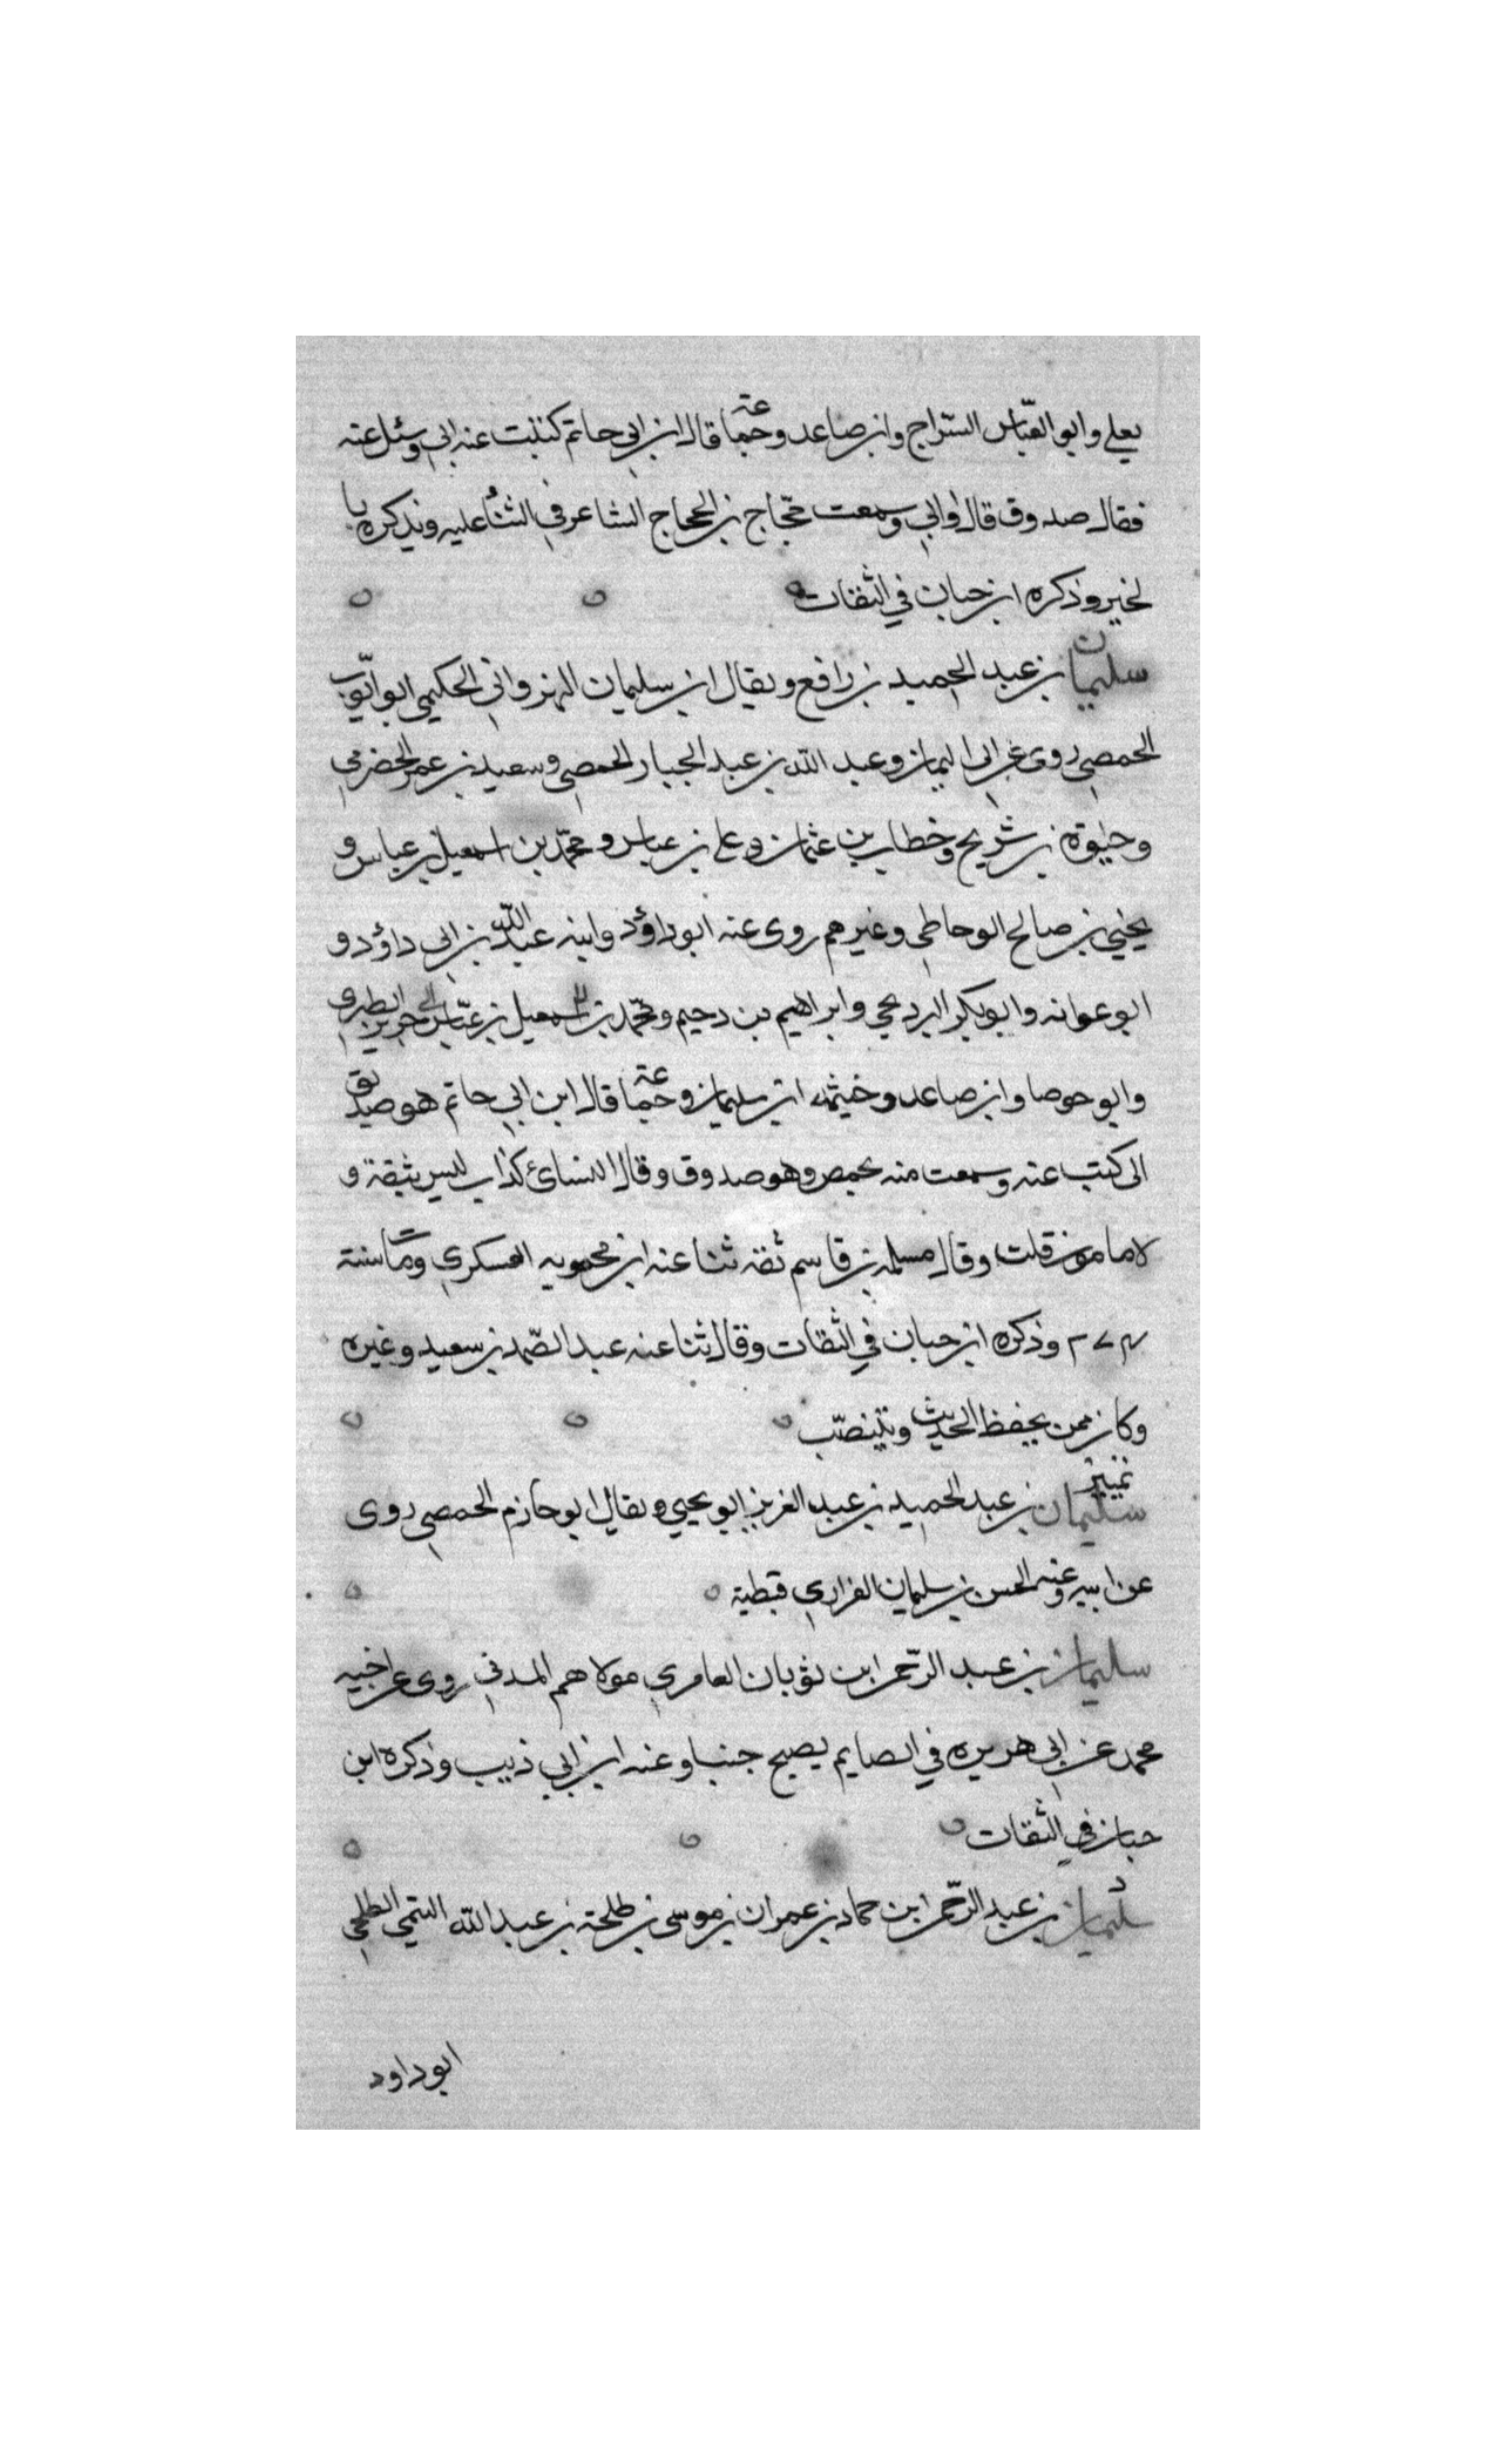 يعلى وابو العبّاس السّراج وابن صاعد وجماعة قال ابن ابي حاتم كتبت عنه ابي وسئل عنه
فقال صدوق قال وابي وسمعت حجّاج بن الحجاج الشاعر في الثناء عليه ويذكره با
لخير وذكره ابن حبان في الثقات
سليمان بن عبد الحميد بن رافع ويقال ابن سليمان البهرواني الحكيمي ابو ايّوب
الحمصي روى عن ابي اليمان وعبد الله بن عبد الجبار الحمصي وسعيد بن عمرو الحضرمي
وحيوة بن شريح وخطاب بن عثمان وعلي بن عباس ومحمّد بن اسمعيل بن عباس و
يحيي بن صالح الوحاظي وغيرهم روى عنه ابو داؤد وابنه عبد الله بن ابي داؤد و
ابو عوانه وابو بكر البرديجي وابراهيم بن دحيم ومحمّد بن اسمعيل بن عبّاس جرير الطبري
وابو حوصا وابن صاعد وخيثمه ابن سليمان وجماعة قال ابن ابي حاتم هو صديق
الى كتب عنه وسمعت منه بحمص وهو صدوق وقال النسائ كذاب ليس بثقة و
لا مامون قلت وقال مسلمه بن قاسم ثقه ثنا عنه ابن محمويه العسكري ومات سنة
٢٧٤ وذكره ابن حبان في الثقات وقال ثنا عنه عبد الصّمد بن سعيد وغيره
وكان ممن يحفظ الحديث ويتنصّب
تمييز
سليمان بن عبد الحميد بن عبد العزيز ابو يحيي ويقال ابو حازم الحمصي روى
عن ابيه وعنه الحسن بن سليمان الفزاري قبطية
سليمان بن عبد الرّحمن ابن ثوبان العامري مولاهم المدني روى عن اخيه
محمد عن ابي هريره في الصايم يصبح جنبا وعنه ابن ابي ذيب وذكره ابن
حبان في الثقات
د
سليمان بن عبد الرّحمن ابن حماد بن عمران بن موسى بن طلحة بن عبد الله التيمي الطلحي
ابو داود